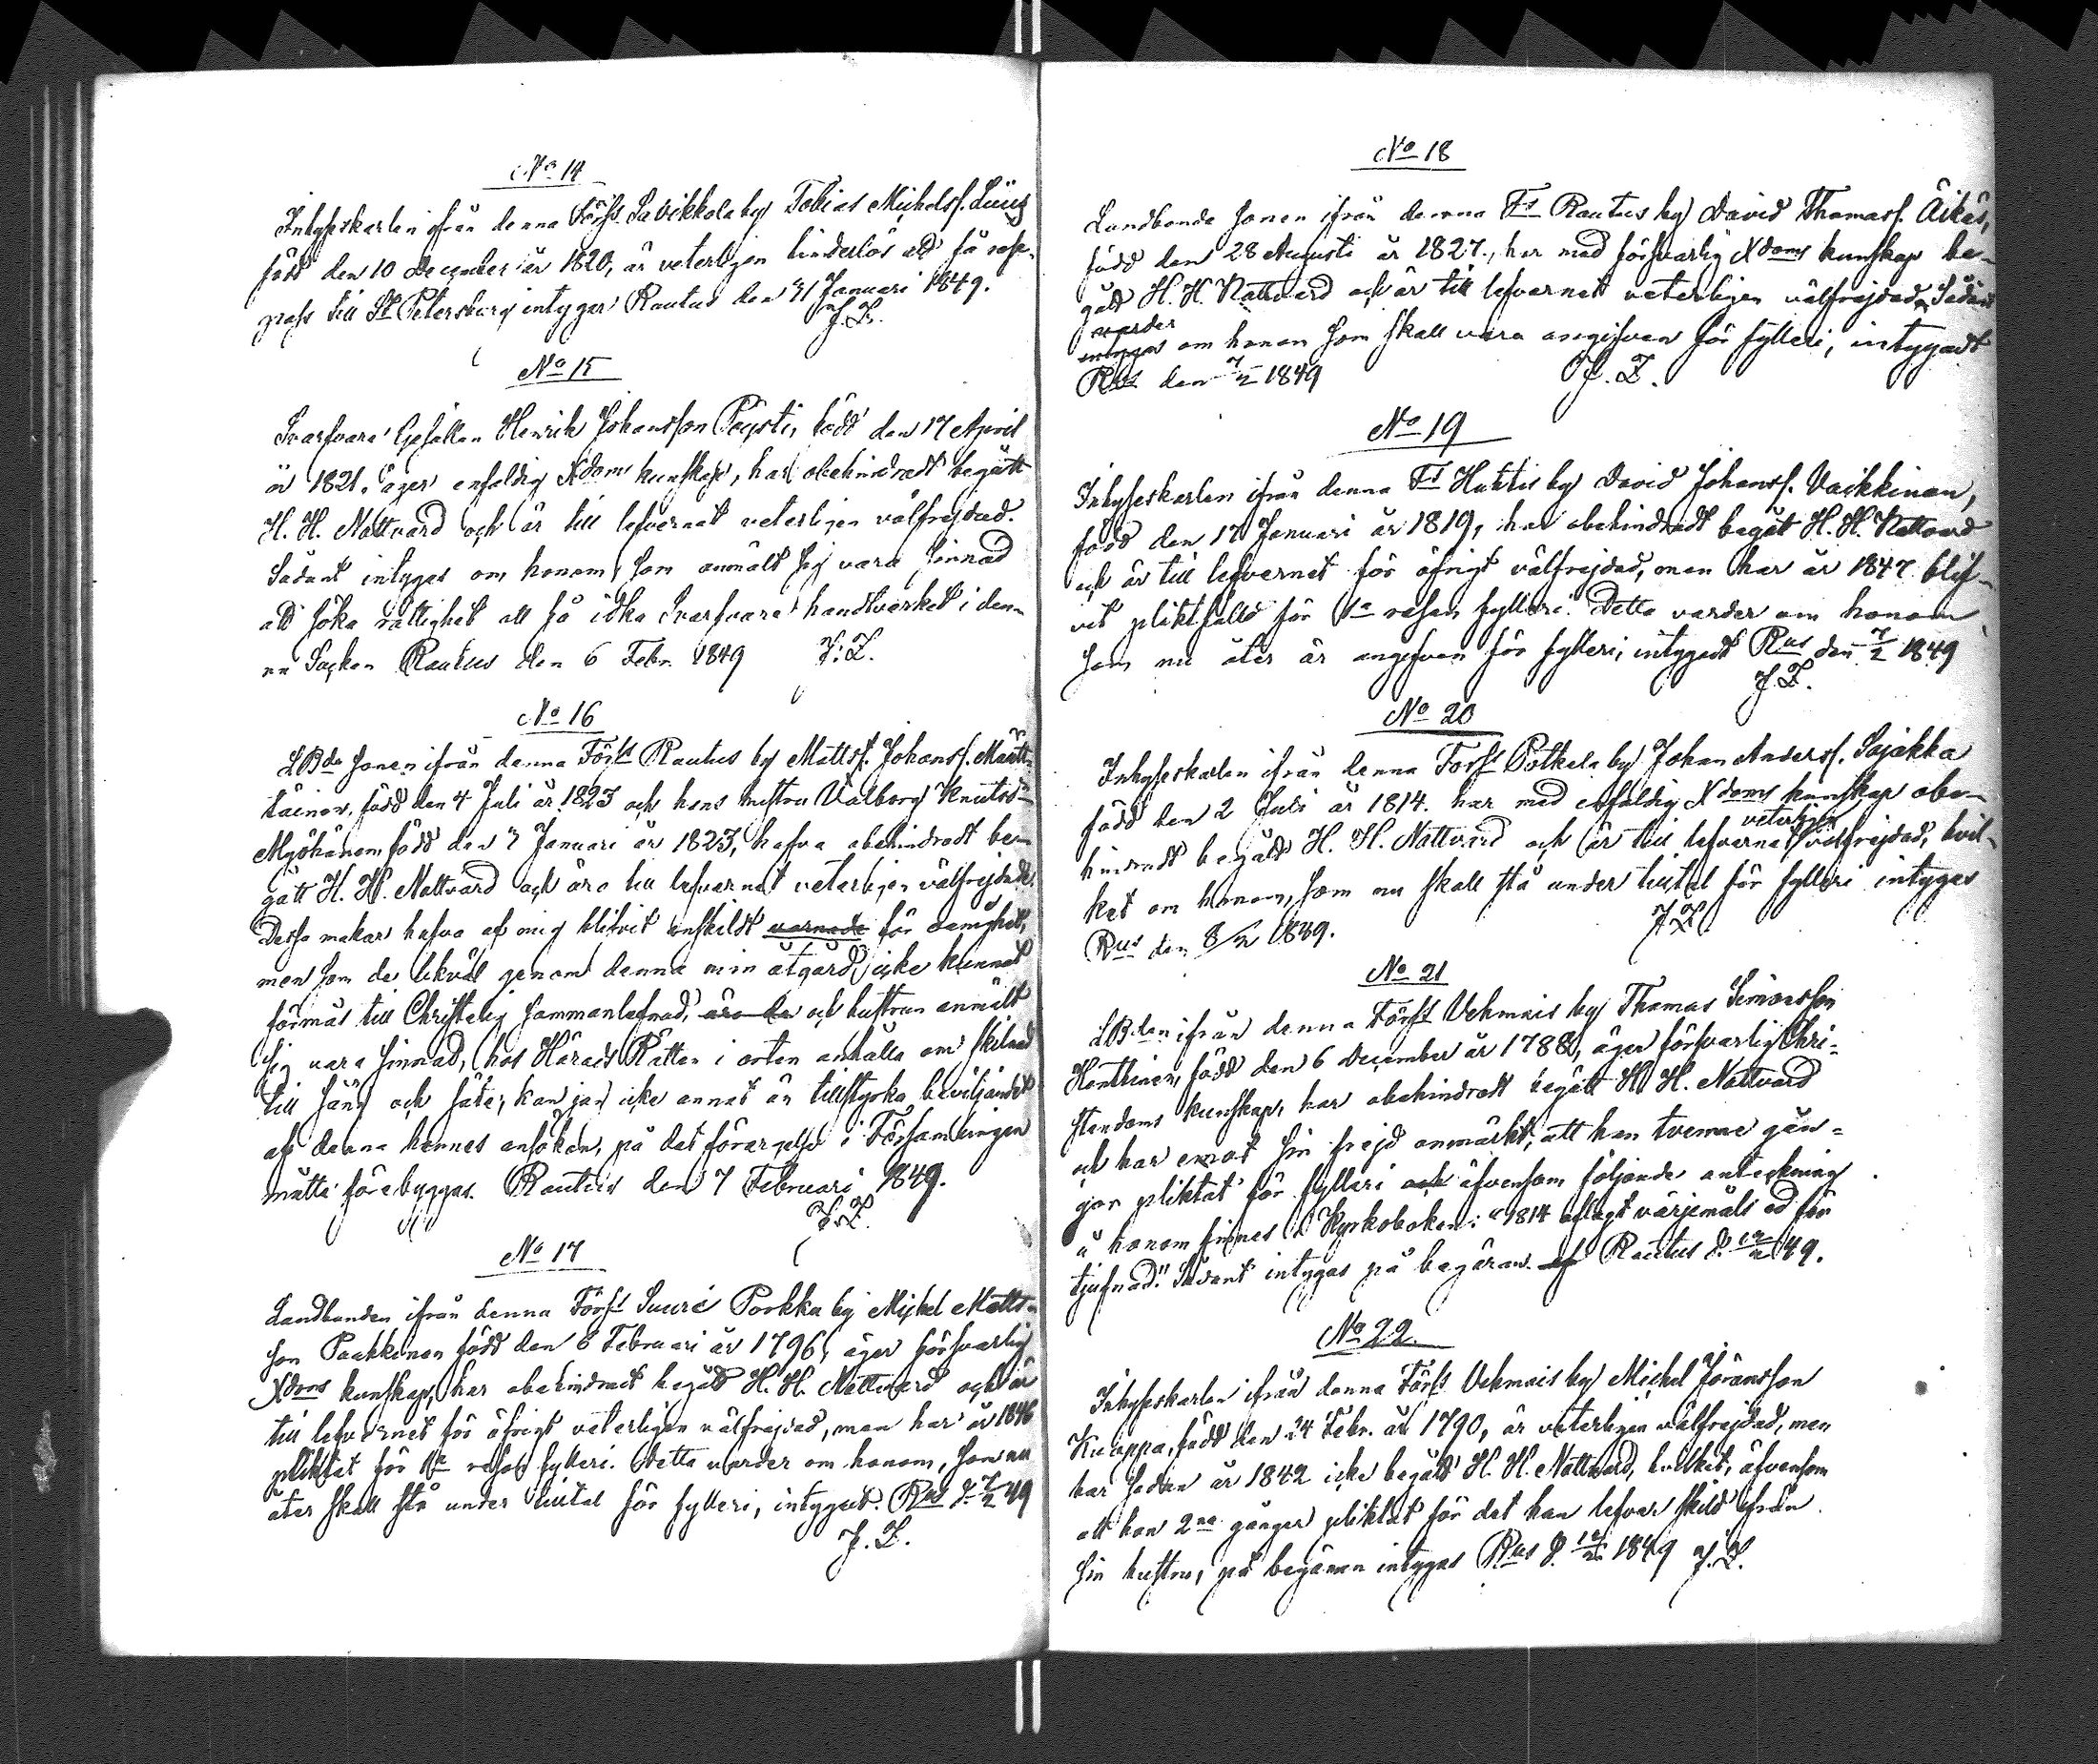 No 14
Inhyseskarlen ifrån denna Förs:t Savikkola by Tobias Michelss. Luug
född den 10 December år 1820, är veterligen hinderlös att få rese-
pass till St Petersburg intygar Rautus den 31 Januari 1849.
J. Z.
No 15
Svarfvare Gesällen Henrik Johansson Pöysti, född den 17 April
år 1821, äger enfaldig Xdoms kunskap, har obehindradt begått
H. H. Nattvard och är till lefvernet veterligen välfrejdad.
Sådant intygas om honom, som anmält sig vara sinnad
att söka rättighet att få idka Svarfvare handtverket i den-
na Socken Rautus den 6 Febr. 1849 J. Z.
No 16
LBde Sonen ifrån denna Förs:t Rautus by Matts Johanss. Mäntt-
täinen, född den 4 Juli år 1823 och hans hustru Valborg Knutsd:r
Myöhänen född den 7 Januari år 1823, hafva obehindradt be-
gått H. H. Nattvard och äro till lefvernet veterligen välfrejdade.
Dessa makar hafva af mig blifvit enskildt varnade för oenighet,
men som de likväl genom denna min åtgärd icke kunnat
förmås till Christelig sammanlefnad, äro de och hustrun anmält
sig vara sinnad, hos Härads Rätten i orten anhålla om skilnad
till säng och säte, kan jag icke annat än tillstyrka beviljandet
af denna hennes ansökan, på det förargelse i Församlingen
måtte förebyggas. Rautus den 7 Februari 1849.
J. Z.
No 17
Landbonden ifrån denna Förs:t Suuri Porkku by Michel Matts-
son Paukkunen född den 8 Februari år 1796, äger försvarlig
Xdoms kunskap, har obehindradt begått H. H. Nattvard och är
till lefvernet för öfrigt veterligen välfrejdad, men har år 1846
pliktat för 1a resan fylleri. Detta varder om honom, som nu
åter skall stå under tilltal för fylleri, intygadt. Rus d. 7/2 49
J. Z.
No 18
Landbonde Sonen ifrån denna Fs Rautus by David Thomass. Äikäs,
född den 28 Augusti år 1827, har med försvarlig Xdoms kunskap be-
gått H. H. Nattvard och är till lefvernet veterligen välfrejdad. Sådant
varder
intygas om honom som skall vara angifven för fylleri, intygadt
Rus den 7/2 1849 J. Z.
No 19
Inhyseskarlen ifrån denna Fs Huhtis by David Johanss. Vaikkinen,
född den 17 Januari år 1819, har obehindradt begått H. H. Nattvard
och är till lefvernet för öfrigt välfrejdad, men har år 1847 blif-
vit pliktfälld för 1a resan fylleri. Detta varder om honom
som nu åter är angifven för fylleri, intygadt Rus den 7/2 1849
J. Z.
No 20
Inhyseskarlen ifrån denna Förs:t Potkela by Johan Anderss. Sajakka
född den 2 Juli år 1814. har med enfaldig Xdoms kunskap obe-
veterligen
hindradt begått H. H. Nattvard och är till lefvernet välfrejdad, hvil-
ket om honom, som nu skall stå under tilltal för fylleri intygas
Rus den 8/2 1849. J Z
No 21
LB:den ifrån denna Förs:t Vehmais by Thomas Simonsson
Hanttinen, född den 6 December år 1788, äger försvarlig Chri-
stendoms kunskap, har obehindradt begått H. H. Nattvard
och har emot sin frejd anmärkt, att han tvenne gån-
gor pliktat för fylleri och äfvensom följande anteckning
å honom finnes i Kyrkoboken: "1814 aflagt värjemåls ed för
tjufnad." Sådant intygas på begäran. af Rautus d. 12/2 49.
No 22.
Inhyseskarlen ifrån denna Förs:t Vehmais by Michel Jöransson
Kuoppa, född den 24 Febr. år 1790, är veterligen välfrejdad, men
har sedan år 1842 icke begått H. H. Nattvard, hvilket, äfvensom
att han 2ne gånger pliktat för det han lefvar skild ifrån
sin hustru, på begäran intygas Rus d. 12/2 1849 J. Z.